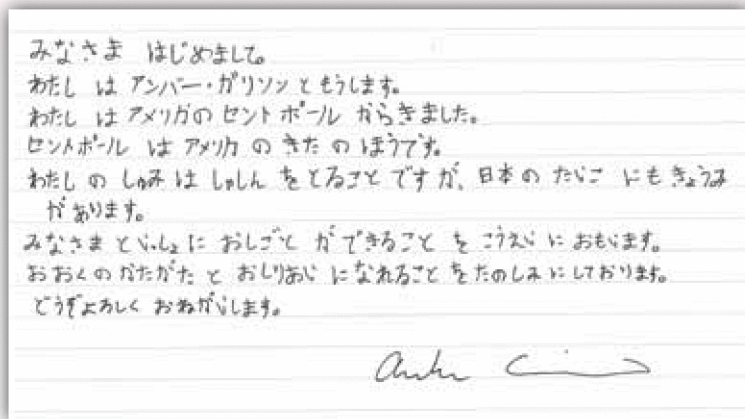 みなさま はじめまして。
わたし は アンバー・ガリソン と もうします。
わたし は アメリカの セント ポール からきました。
セントポール は アメリカ の きた の ほうです。
わたし の しゅみ は しゃしん を とること です が、日本の たいこ にも きょうみ
があります。
みなさま と いっしょ に おしごと が できること を こうえい に おもいます。
おおくの かたがた と おしりあい に なれること を たのしみ に しております。
どうぞよろしく おねがいします。